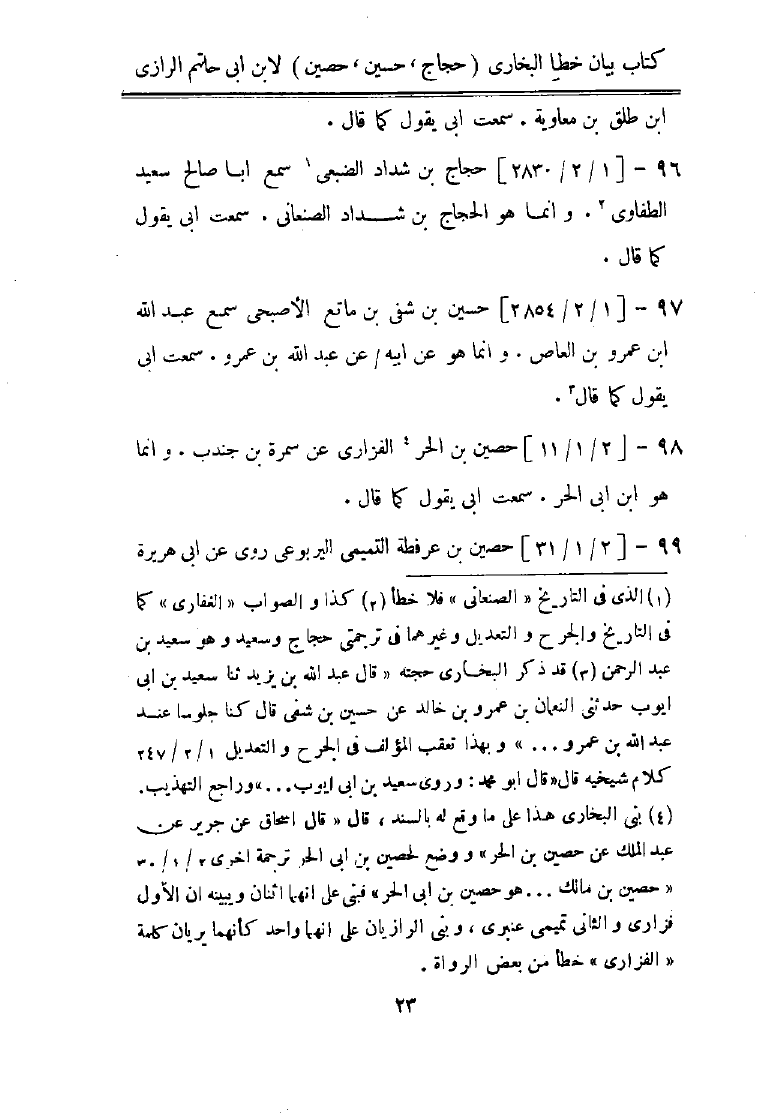 كتاب بيان خطأ البخارى ( حجاج ، حسين ، حصين ) لابن ابى حاتم الرازى
ابن طلق بن معاوية . سمعت ابى يقول كما قال .
٩٦ – [ ١ / ٢ / ٢٨٣٠ ] حجاج بن شداد الضبعى ١ سمع ابا صالح سعيد
الطفاوى ٢ . و انما هو الحجاج بن شداد الصنعانى . سمعت ابى يقول
كما قال .
٩٧ – [ ١ / ٢ / ٢٨٥٤ ] حسين بن شفى بن ماتع الأصبحى سمع عبد الله
ابن عمرو بن العاص . و انما هو عن ابيه / عن عبد الله بن عمرو . سمعت ابى
يقول كما قال ٣ .
٩٨ – [ ٢ / ١ / ١١ ] حصين بن الحر ٤ الفزارى عن سمرة بن جندب . و انما
هو ابن ابى الحر . سمعت ابى يقول كما قال .
٩٩ – [ ٢ / ١ / ٣١ ] حصين بن عرفطة التميمى اليربوعى روى عن ابى هريرة
(١) الذى فى التاريخ « الصنعانى » فلا خطأ (٢) كذا و الصواب « الغفارى » كما
فى التاريخ والجرح و التعديل وغيرهما فى ترجمتى حجاج وسعيد و هو سعيد بن
عبد الرحمن (٣) قد ذكر البخارى حجته « قال عبد الله بن يزيد ثنا سعيد بن ابى
ايوب حدثنى النعمان بن عمرو بن خالد عن حسين بن شفى قال كنا جلوسا عند
عبد الله بن عمرو ... » و بهذا تعقب المؤلف فى الجرح و التعديل ١ / ٢ / ٢٤٧
كلام شيخيه قال «قال ابو محمد : وروى سعيد بن ابى ايوب ...» وراجع التهذيب.
(٤) بنى البخارى هذا على ما وقع له بالسند ، قال « قال اسحاق عن جرير عن
عبد الملك عن حصين بن الحر » و وضع لحصين بن ابى الحر ترجمة اخرى ٢ / ١ / ٣٠
« حصين بن مالك ... هو حصين بن ابى الحر » فبنى على انهما اثنان ويبينه ان الأول
فزارى و الثانى تميمى عنبرى ، و بنى الرازيان على انهما واحد كأنهما يريان كلمة
« الفزارى » خطأ من بعض الرواة .
٢٣